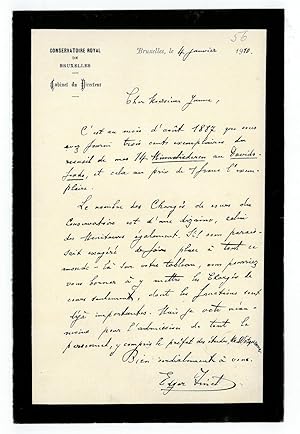 56
CONSERVATOIRE ROYAL
DE
BRUXELLES
Cabinet du Directeur
Bruxelles, le 4 janvier 1910.
Cher Monsieur Jaume,
C'est au mois d'août 1887 que vous
ai fourni trois cents exemplaires du
recueil de mes 14 au Davids-
fonds, et cela au prix de 1 franc l'exem-
plaire.
Le nombre des Chargés de cours du
Conservatoire est d'une dizaine, celui
des Moniteurs également. S'il vous parais-
sait exagéré de faire place à tout ce
monde-là sur votre tableau, vous pourriez
vous borner à y mettre les Chargés de
cours seulement, dont les fonctions sont
déjà importantes. Mais je vote néan-
moins pour l'admission de tout le
personnel, y compris le préfet des études,
Bien cordialement à vous.
Edgar Tinel